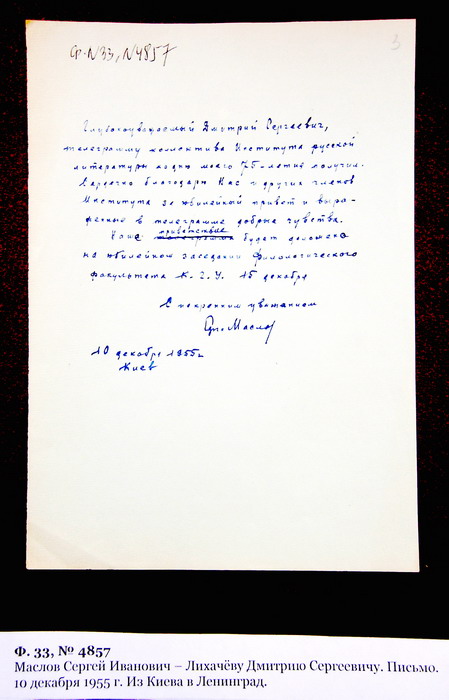 Ф. N 33, N 4857
3
Глубокоуважаемый Дмитрий Сергеевич,
телеграмму коллектива Института русской
литературы ко дню моего 75-летия получил.
Сердечно благодарю Вас и других членов
Института за юбилейный привет и выра-
женные в телеграмме добрые чувства.
Ваше приветствие
телеграмма будет доложено
на юбилейном заседании филологического
факультета К.Г.У. 15 декабря
С искренним уважением
Срг. Маслов
10 декабря 1955 г.
Киев
Ф. 33, № 4857
Маслов Сергей Иванович – Лихачёву Дмитрию Сергеевичу. Письмо.
10 декабря 1955 г. Из Киева в Ленинград.